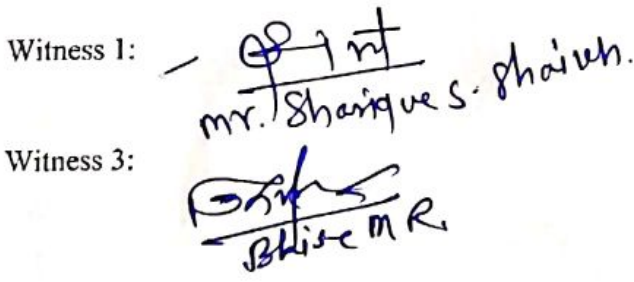 Witness 1:
mr. Sharique S. Shaikh.
Witness 3:
Bhise M R.